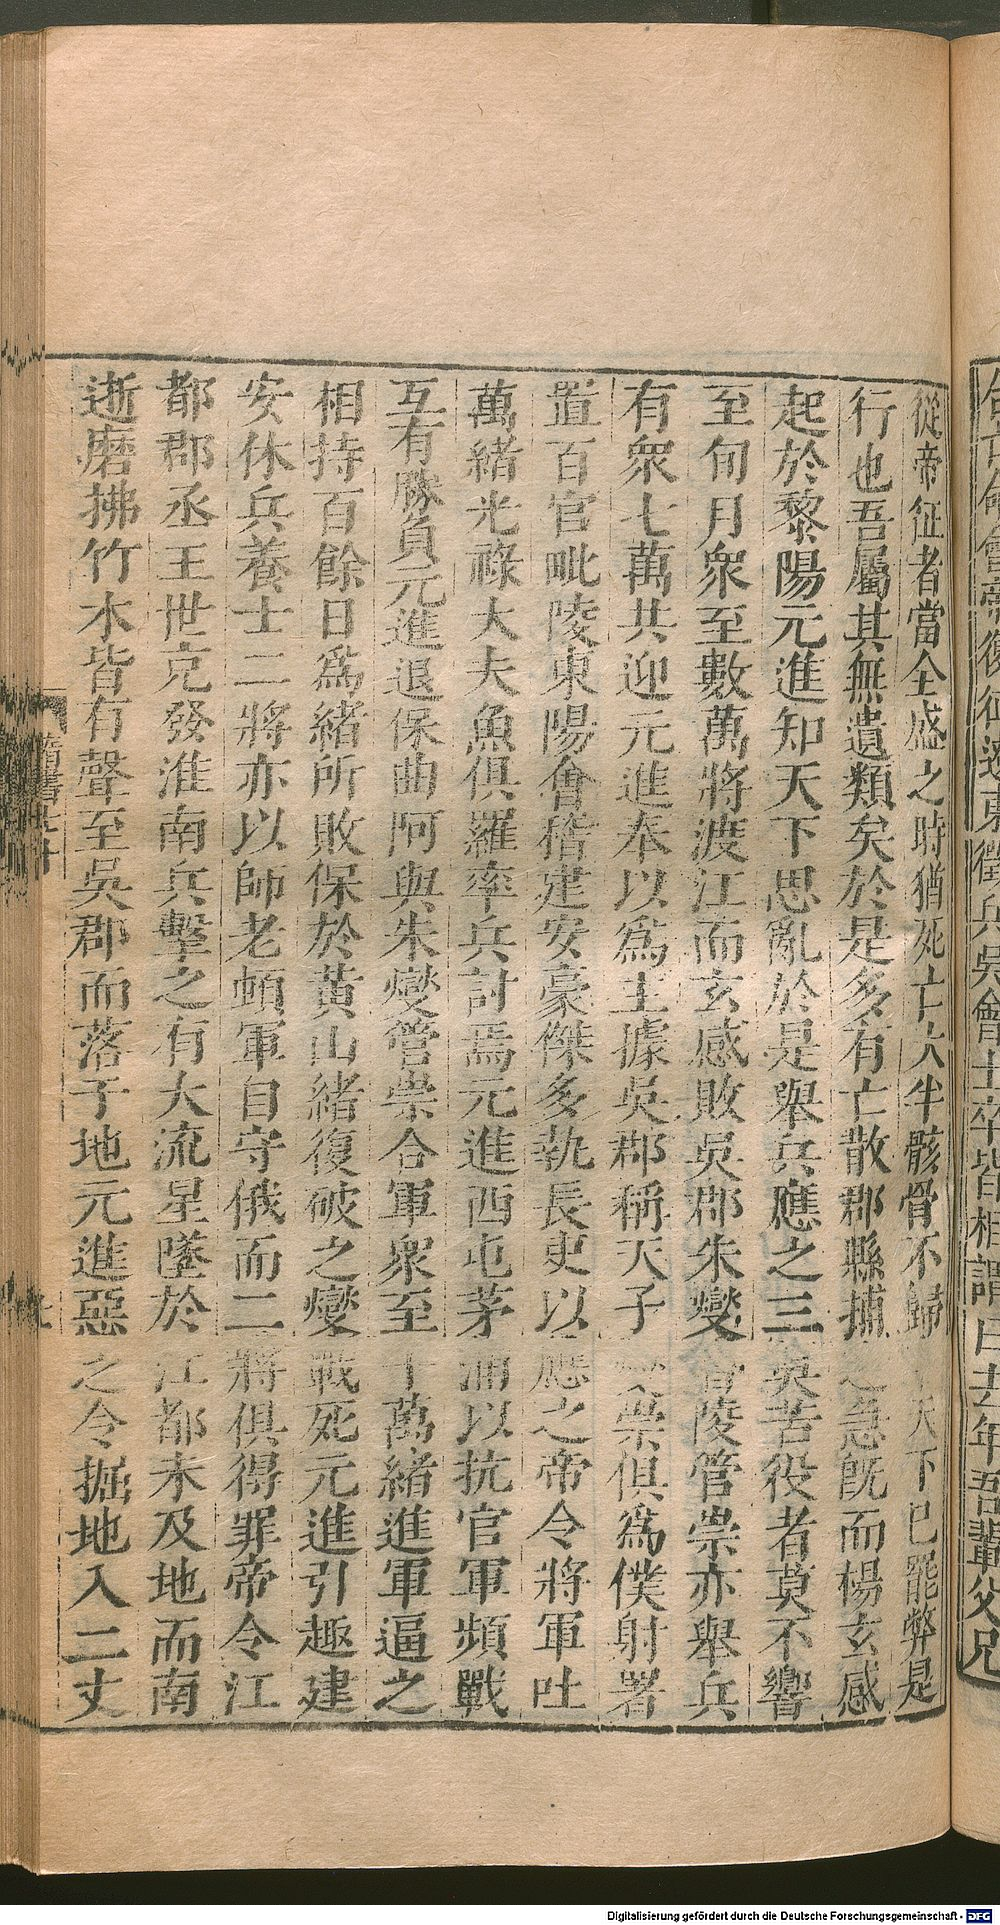 從帝征者當全盛之時猶死亡大半骸骨不歸天下已罷弊是
行也吾屬其無遺類矣於是多有亡散郡縣捕之急旣而楊玄感
起於黎陽元進知天下思亂於是舉兵應之三吳苦役者莫不響
至旬月衆至數萬將渡江而玄感敗吳郡朱燮晉陵管崇亦舉兵
有衆七萬共迎元進奉以爲主據吳郡稱天子崇俱爲僕射署
置百官毗陵東陽會稽建安豪傑多執長吏以應之帝令將軍吐
萬緒光祿大夫魚俱羅率兵討焉元進西屯茅浦以抗官軍頻戰
互有勝負元進退保曲阿與朱燮管崇合軍衆至十萬緒進軍逼之
相持百餘日爲緒所敗保於黃山緒復破之燮戰死元進引趣建
安休兵養士二將亦以師老頓軍自守俄而二將俱得罪帝令江
都郡丞王世充發淮南兵擊之有大流星墜於江都未及地而南
逝磨拂竹木皆有聲至吳郡而落于地元進惡之令掘地入二丈
隋書七十
Digitalisierung gefördert durch die Deutsche Forschungsgemeinschaft - DFG